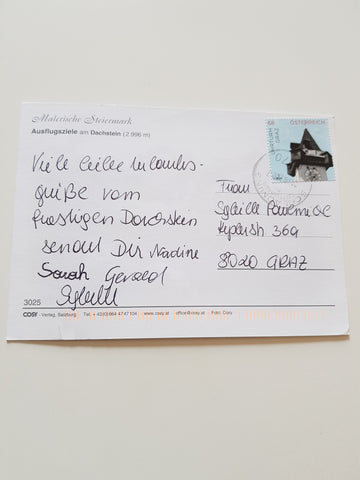 Malerische Steiermark
Ausflugsziele am Dachstein (2 996 m)
Viele liebe Urlaubs-
grüße vom
frostigen Dachstein
sendet Dir Nadine
Sarah Gerald
Sybille
Frau
Sybille
36a
8020 GRAZ
68
UHRTURM GRAZ
ÖSTERREICH
3025
COSY - Verlag, Salzburg · Tel.: +43(0)664 4747104 · www.cosy.at · office@cosy.at · Foto: Cosy